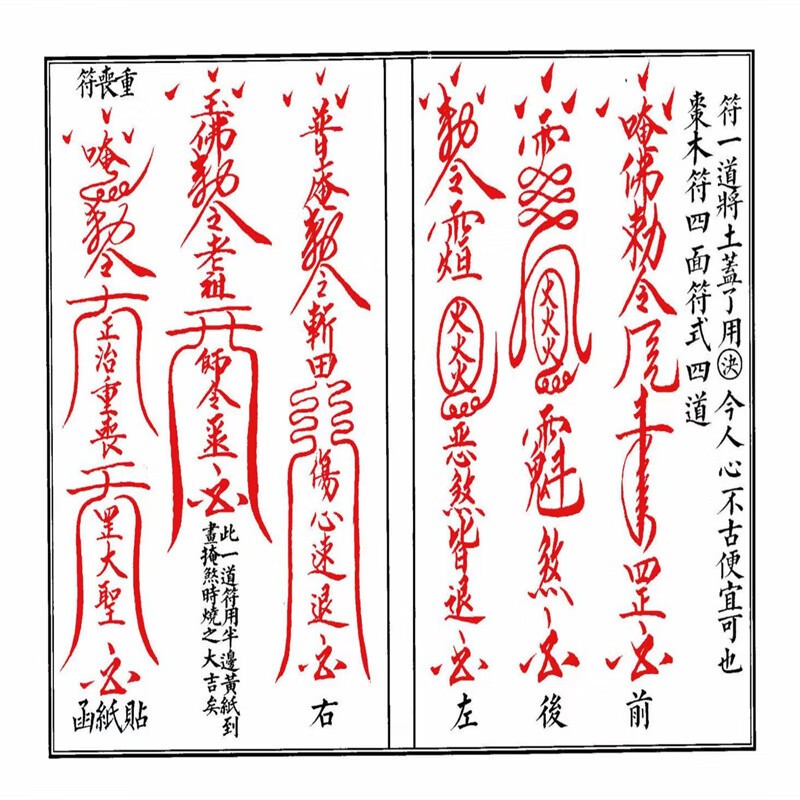 符一道將土蓋了用決今人心不古便宜可也
棗木符四面符式四道
唵佛勅令
四正
前
雨
火火火
煞
後
勅令
火火火
恶煞皆退
左
普庵勅令斬田
傷心速退
右
玉佛勅令老祖
師令
此一道符用半邊黃紙到
畫掩煞時燒之大吉矣
重喪符
唵
勅令
正治重喪
罡大聖
貼紙函